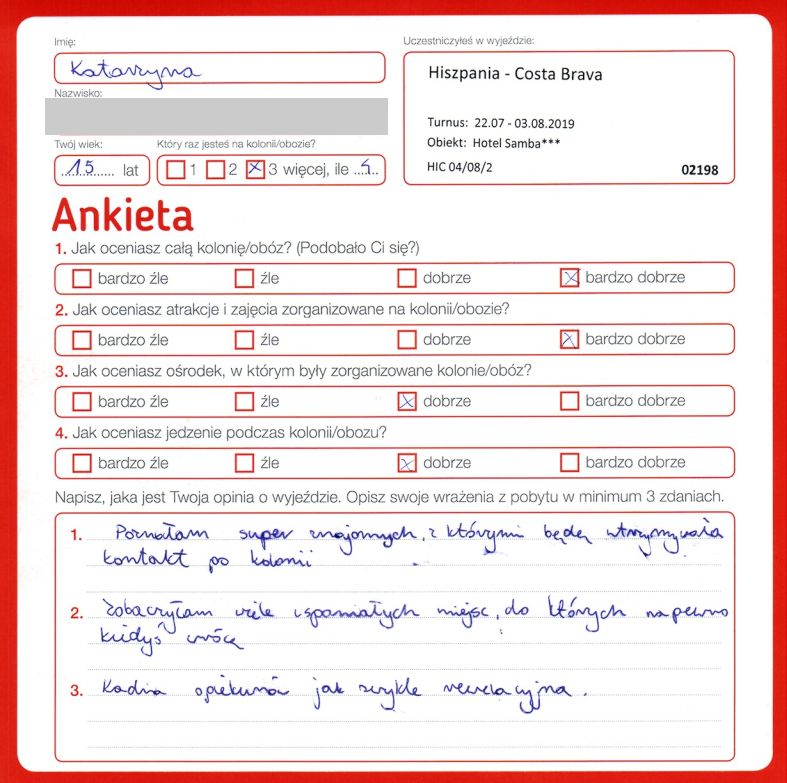 Imię:
Katarzyna
Nazwisko:
Twój wiek:
15 lat
Który raz jesteś na kolonii/obozie?
1 2 3 więcej, ile
Uczestniczyłeś w wyjeździe:
Hiszpania - Costa Brava
Turnus: 22.07 - 03.08.2019
Obiekt: Hotel Samba***
HIC 04/08/2 02198
Ankieta
1. Jak oceniasz całą kolonię/obóz? (Podobało Ci się?)
bardzo źle źle dobrze bardzo dobrze
2. Jak oceniasz atrakcje i zajęcia zorganizowane na kolonii/obozie?
bardzo źle źle dobrze bardzo dobrze
3. Jak oceniasz ośrodek, w którym były zorganizowane kolonie/obóz?
bardzo źle źle dobrze bardzo dobrze
4. Jak oceniasz jedzenie podczas kolonii/obozu?
bardzo źle źle dobrze bardzo dobrze
Napisz, jaka jest Twoja opinia o wyjeździe. Opisz swoje wrażenia z pobytu w minimum 3 zdaniach.
1. Poznałam super znajomych, z którymi będę utrzymywała
kontakt po kolonii
2. Zobaczyłam wiele wspaniałych miejsc, do których na pewno
kiedyś wrócę
3. Kadra opiekunów jak zwykle rewelacyjna.